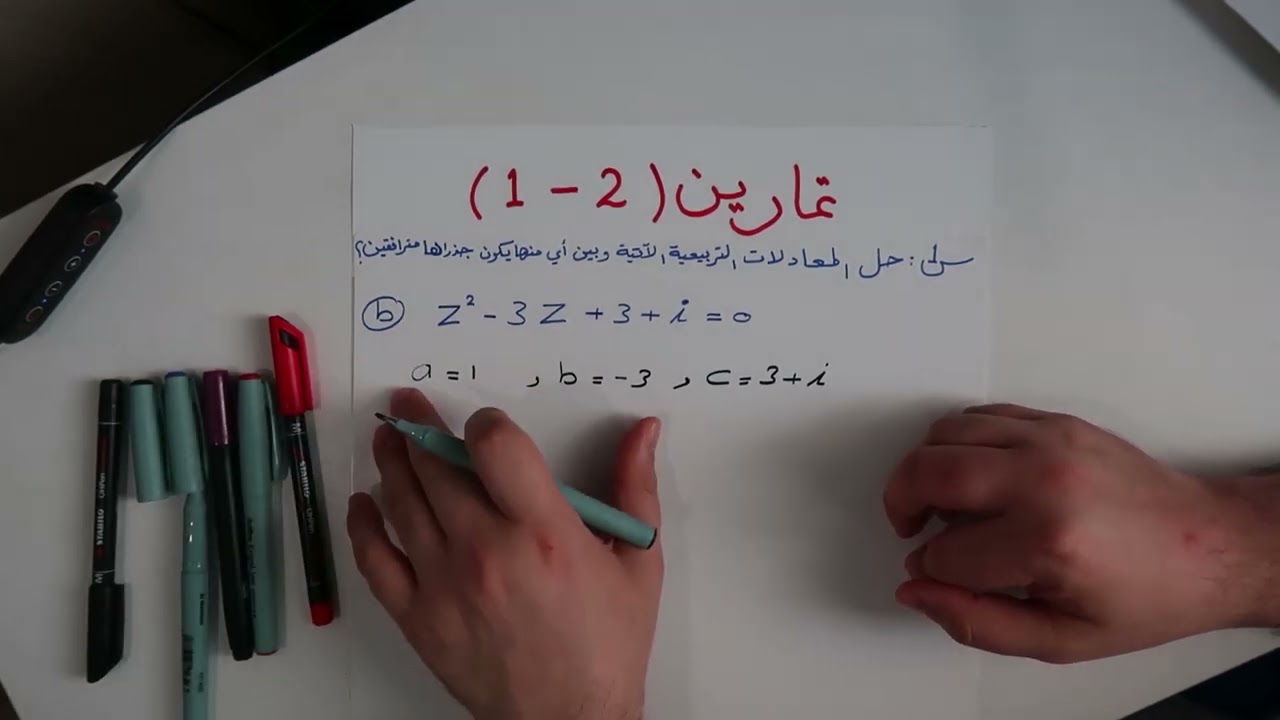 تمارين (1 - 2)
س1: حل المعادلات التربيعية الآتية وبين أي منها يكون جذراها مترافقين؟
b z² - 3z + 3 + i = 0
a = 1 , b = -3 , c = 3 + i
STABILO OHPen
M
STABILO
M